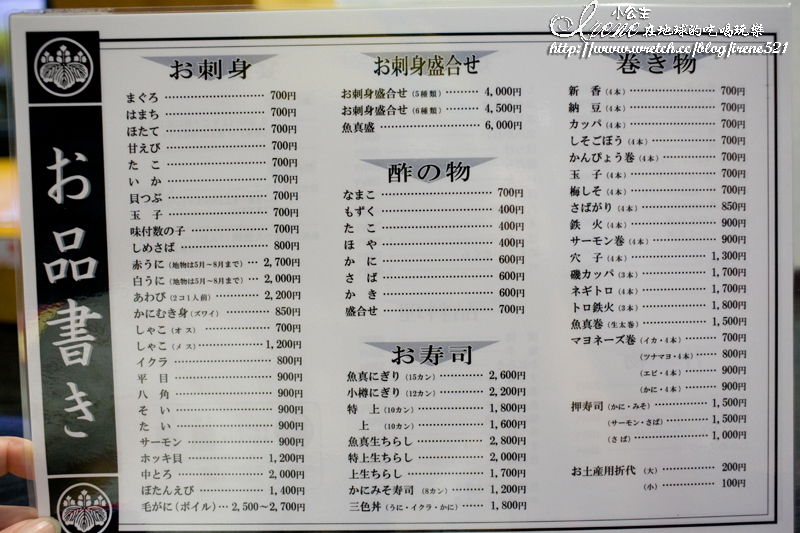 小公主
Irene在地球的吃喝玩樂
http://www.wretch.cc/blog/irene521
お品書き
お刺身
まぐろ 700円
はまち 700円
ほたて 700円
甘えび 700円
たこ 700円
いか 700円
貝つぶ 700円
玉子 700円
味付数の子 700円
しめさば 800円
赤うに(地物は5月～8月まで) 2,700円
白うに(地物は5月～8月まで) 2,000円
あわび(2コ1人前) 2,200円
かにむき身(ズワイ) 850円
しゃこ(オス) 700円
しゃこ(メス) 1,200円
イクラ 800円
平目 900円
八角 900円
そい 900円
たい 900円
サーモン 900円
ホッキ貝 1,200円
中とろ 2,000円
ぼたんえび 1,400円
毛がに(ボイル) 2,500～2,700円
お刺身盛合せ
お刺身盛合せ(5種類) 4,000円
お刺身盛合せ(6種類) 4,500円
魚真盛 6,000円
酢の物
なまこ 700円
もずく 400円
たこ 400円
ほや 400円
かに 600円
さば 600円
かき 600円
盛合せ 700円
お寿司
魚真にぎり(15カン) 2,600円
小樽にぎり(12カン) 2,200円
特上(10カン) 1,800円
上(10カン) 1,600円
魚真生ちらし 2,800円
特上生ちらし 2,000円
上生ちらし 1,700円
かにみそ寿司(8カン) 1,200円
三色丼(うに・イクラ・かに) 1,800円
巻き物
新香(4本) 700円
納豆(4本) 700円
カッパ(4本) 700円
しそごぼう(4本) 700円
かんぴょう巻(4本) 700円
玉子(4本) 700円
梅しそ(4本) 700円
さばがり(4本) 850円
鉄火(4本) 900円
サーモン巻(4本) 900円
穴子(4本) 1,300円
磯カッパ(3本) 1,700円
ネギトロ(4本) 1,700円
トロ鉄火(3本) 1,800円
魚真巻(生太巻) 1,500円
マヨネーズ巻(イカ・4本) 700円
(ツナマヨ・4本) 800円
(エビ・4本) 900円
(かに・4本) 900円
押寿司(かに・みそ) 1,500円
(サーモン・さば) 1,500円
(さば) 1,000円
お土産用折代(大) 200円
(小) 100円